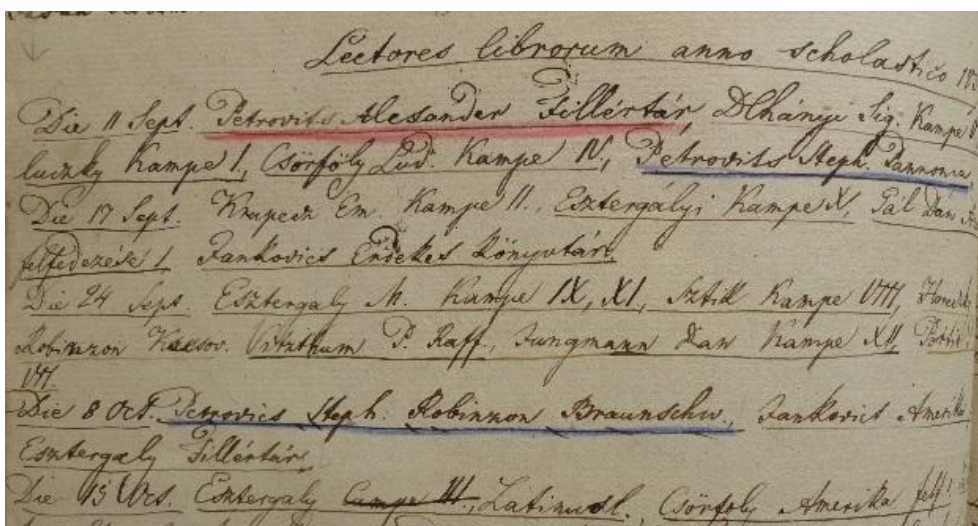 Lectores librorum anno scholastico 18
Die 11 Sept. Petrovits Alesander Fillértár, Dlhányi Sig. Kampe
luczky Kampe I, Csörföly Lud. Kampe IV, Petrovits Steph. Pannonia
Die 17 Sept. Krupecz Em. Kampe II., Esztergályi Kampe X, Pál Dan
felfedezése I, Jankovics Érdekes Könyvtár,
Die 24 Sept. Esztergaly M. Kampe IX, XI, Sztik Kampe VIII,
Robinzon P. Raff, Jungmann Dan Kampe XII,
VII.
Die 8 Oct. Petrovics Steph. Robinzon Braunschw., Jankovics Amerika
Esztergaly Fillértár,
Die 15 Oct. Esztergaly Campe III., Csörföly Amerika felf.